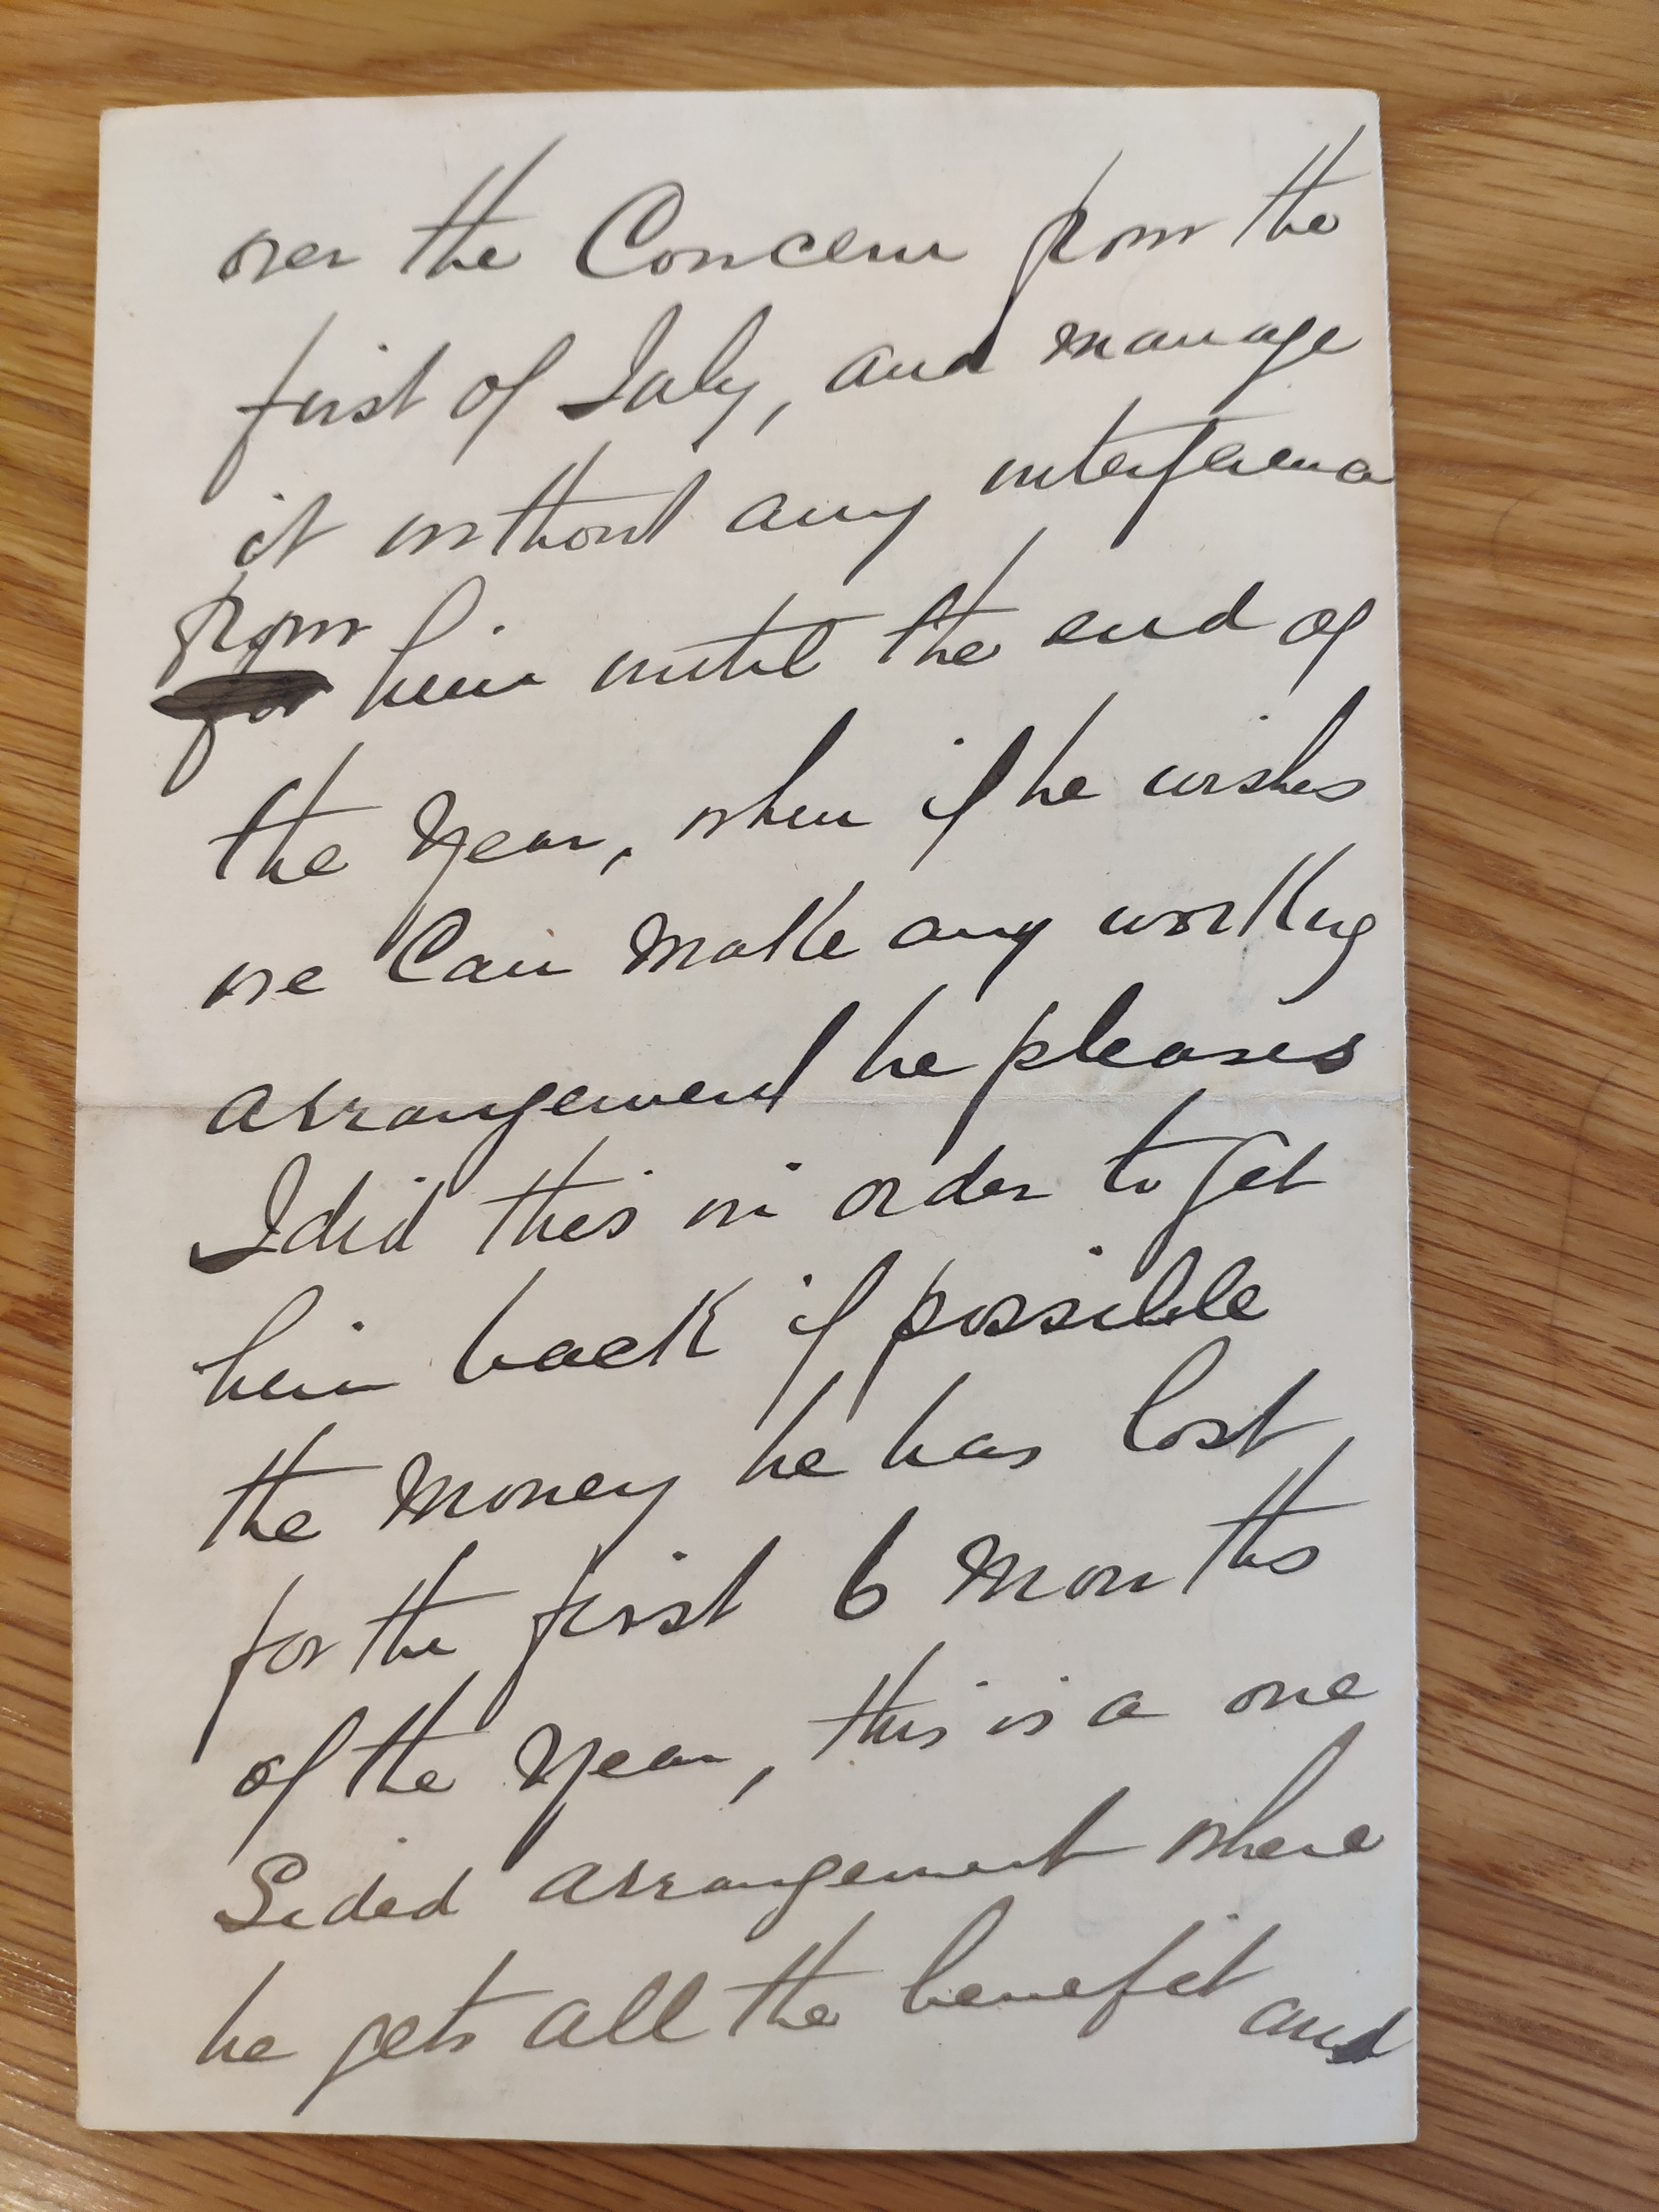 over the Concern from the
first of July, and manage
it without any interference
from
for him until the end of
the year, when if he wishes
we Can make any working
arrangement he pleases
I did this in order to get
him back if possible
the money he has lost
for the first 6 months
of the year, this is a one
Sided arrangement where
he gets all the benefit and